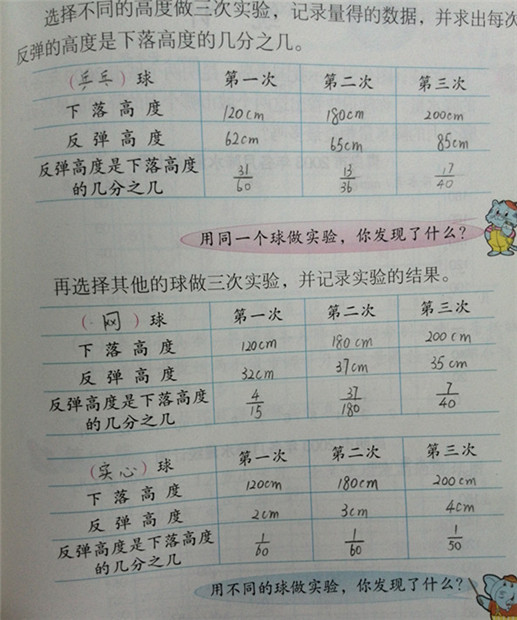 选择不同的高度做三次实验，记录量得的数据，并求出每次
反弹的高度是下落高度的几分之几。
（乒乓）球 第一次 第二次 第三次
下落高度 120cm 180cm 200cm
反弹高度 62cm 65cm 85cm
反弹高度是下落高度 31/60 13/36 17/40
的几分之几
用同一个球做实验，你发现了什么？
再选择其他的球做三次实验，并记录实验的结果。
（网）球 第一次 第二次 第三次
下落高度 120cm 180cm 200cm
反弹高度 32cm 37cm 35cm
反弹高度是下落高度 4/15 37/180 7/40
的几分之几
（实心）球 第一次 第二次 第三次
下落高度 120cm 180cm 200cm
反弹高度 2cm 3cm 4cm
反弹高度是下落高度 1/60 1/60 1/50
的几分之几
用不同的球做实验，你发现了什么？